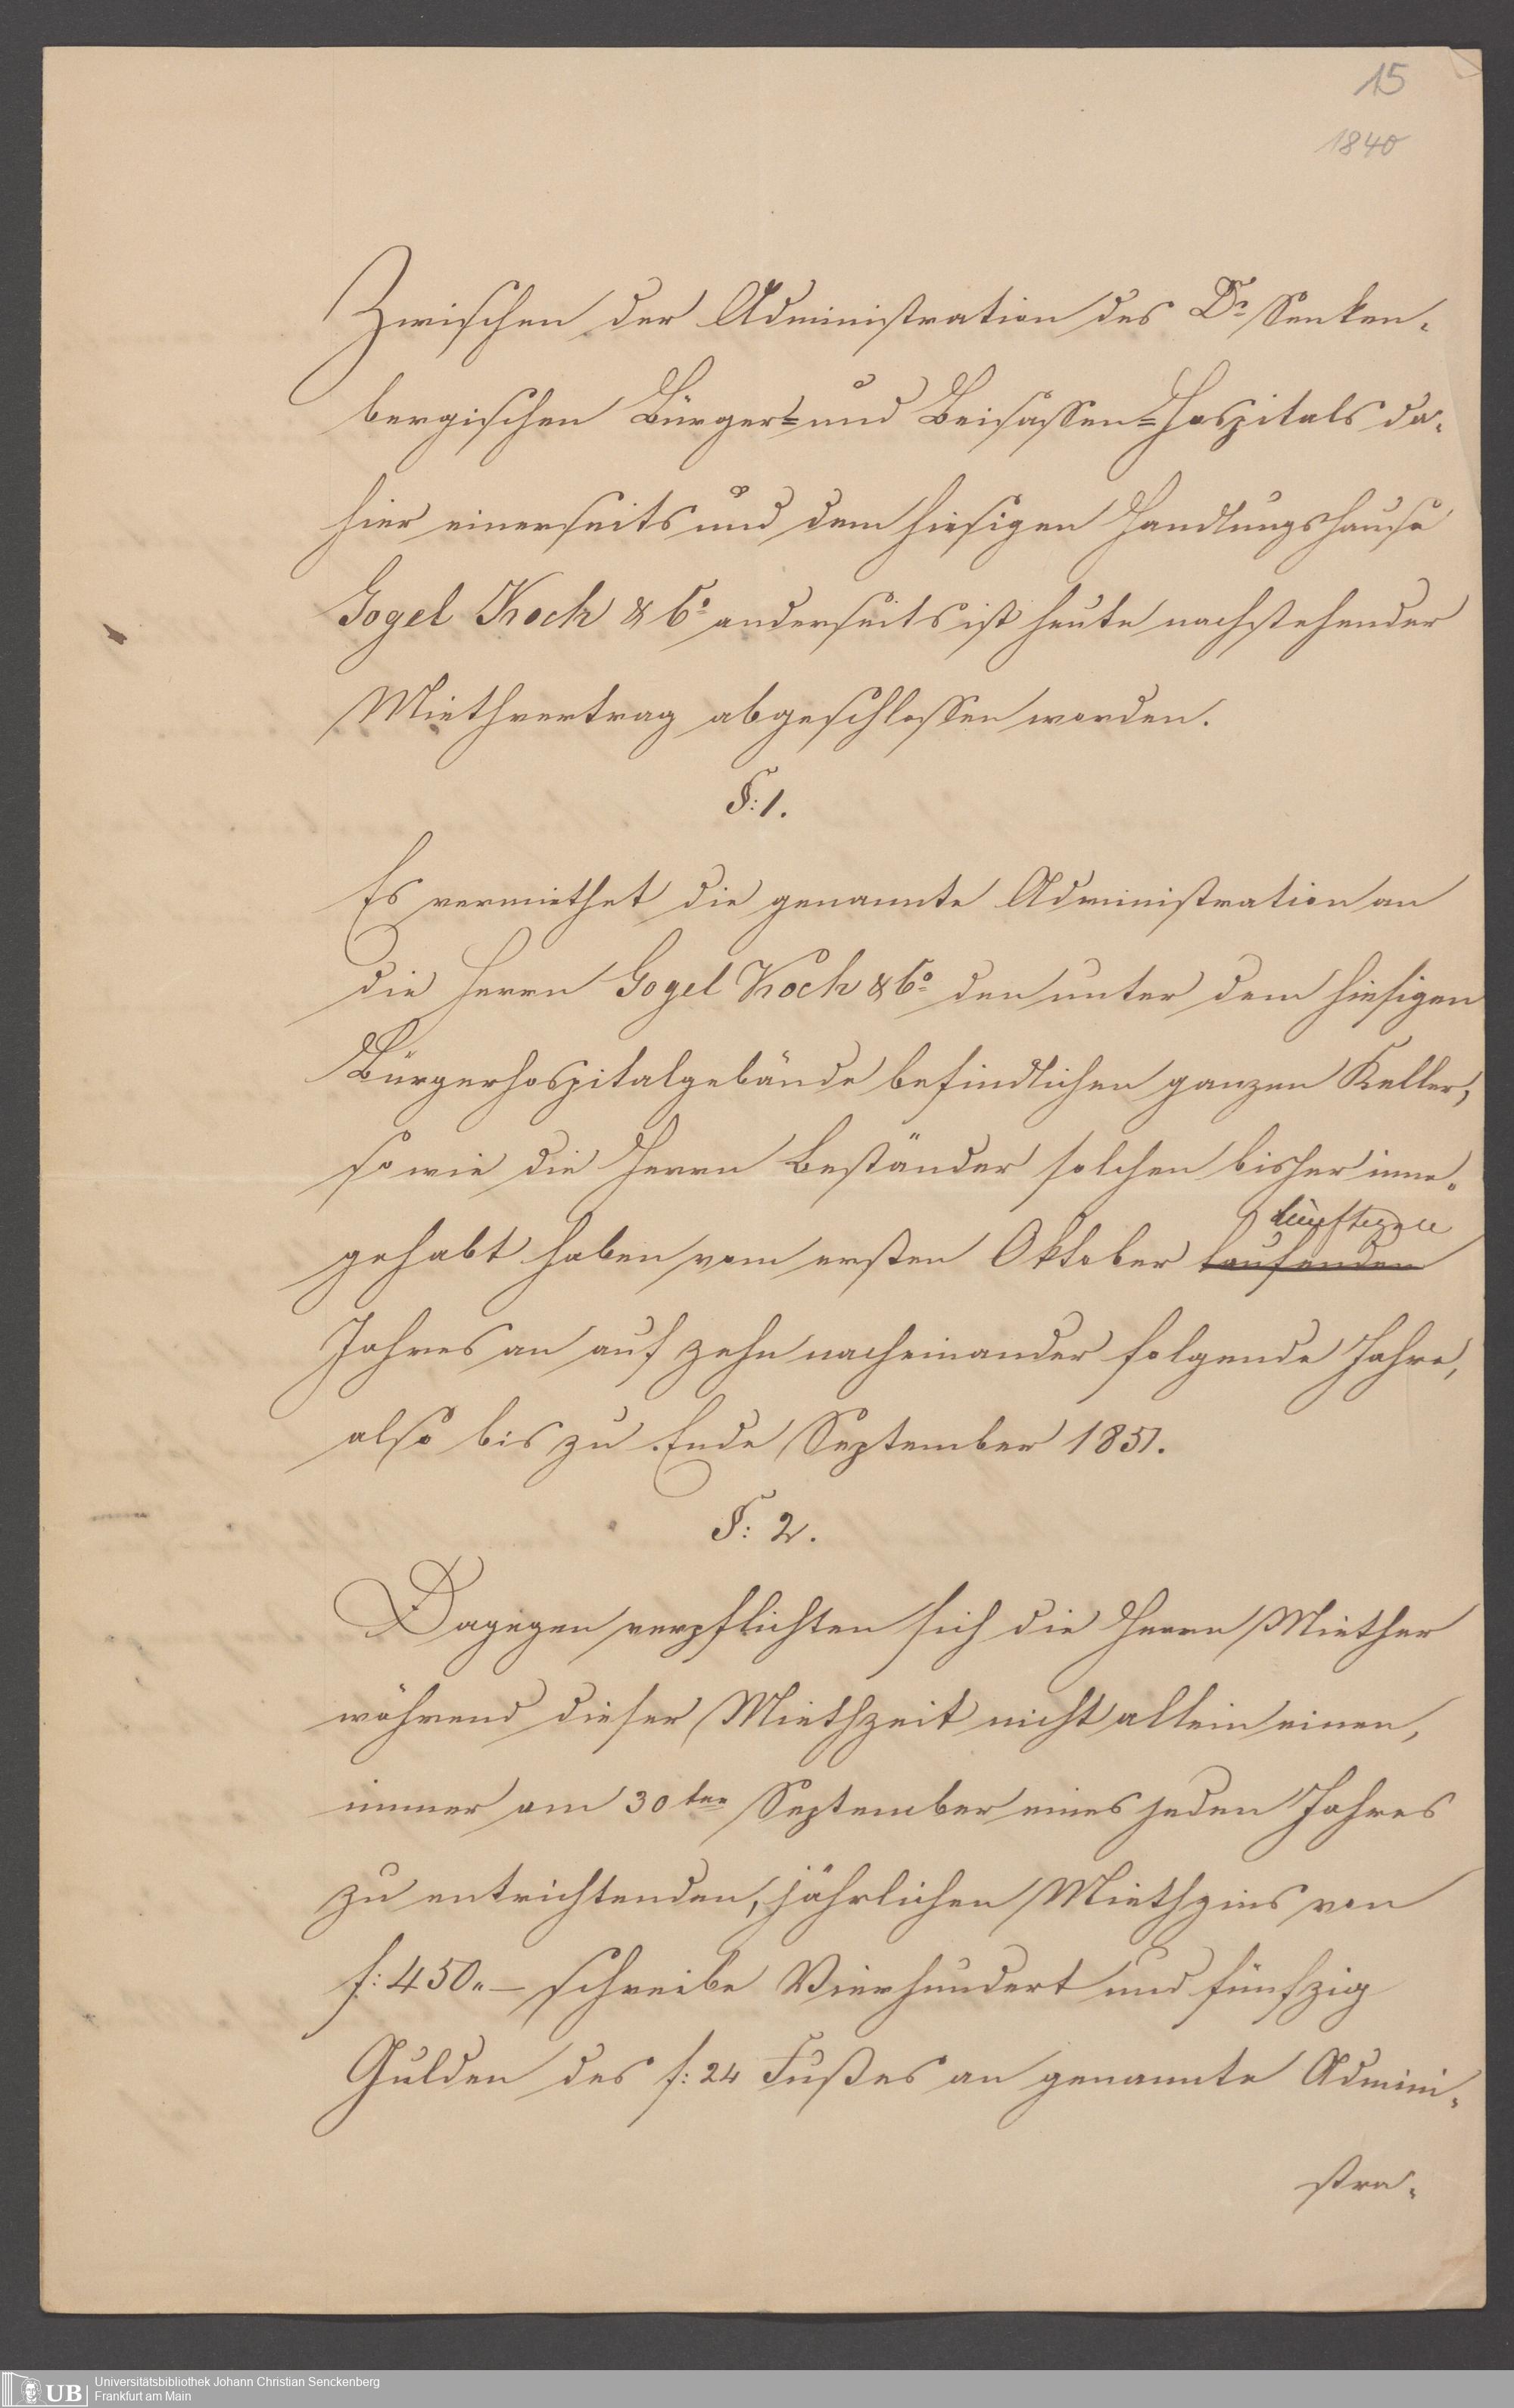 15
1840
Zwischen der Administration des Dr Senken-
bergischen Bürger- und Beisassen-Hospitals da-
hier einerseits und dem hiesigen Handlungshause
Gogel Koch & Co anderseits ist heute nachstehender
Miethvertrag abgeschlossen worden.
§: 1.
Es vermiethet die genannte Administration an
die Herrn Gogel Koch & Co den unter dem hiesigen
Bürgerhospitalgebäude befindlichen ganzen Keller,
so wie die Herrn Beständer solchen bisher inne-
künftigen
gehabt haben vom ersten Oktober laufenden
Jahres an auf zehn nacheinander folgende Jahre,
also bis zu Ende September 1851.
§: 2.
Dagegen verpflichten sich die Herrn Miether
während dieser Miethzeit nicht allein einen,
immer am 30ten September eines jeden Jahres
zu entrichtenden, jährlichen Miethzins von
f: 450.- schreibe Vierhundert und fünfzig
Gulden des f: 24 Fußes an genannte Admini-
stra-
UB
Universitätsbibliothek Johann Christian Senckenberg
Frankfurt am Main